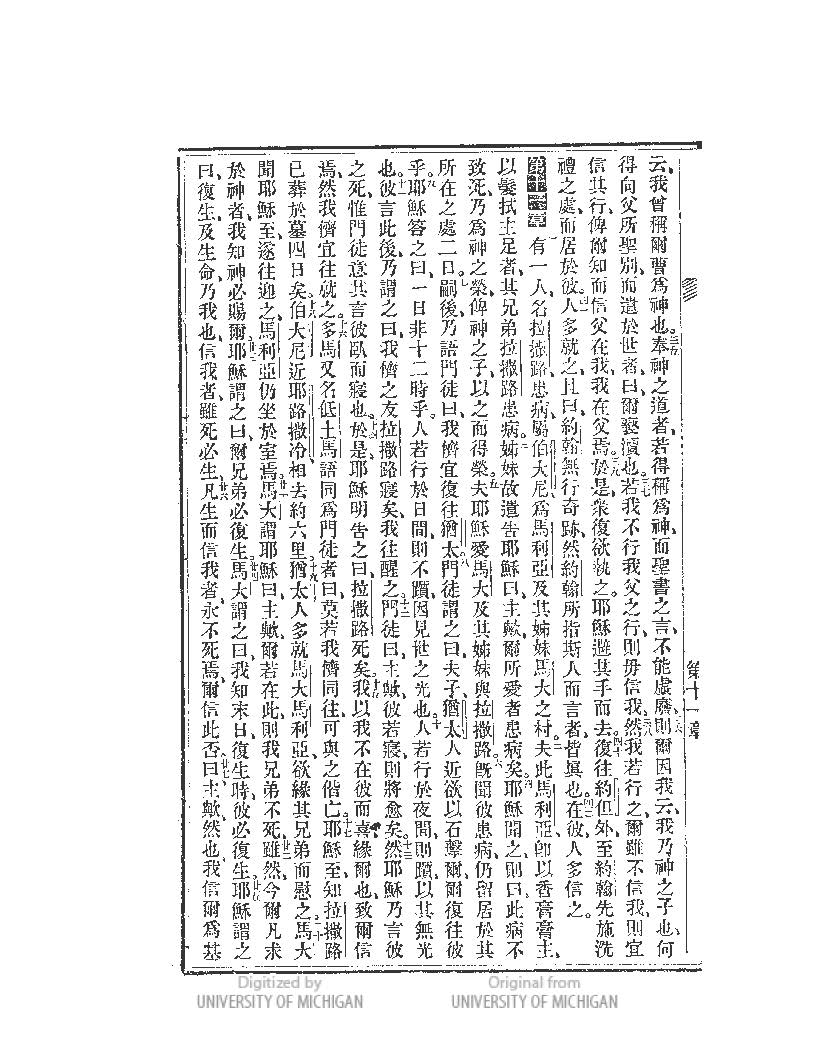 第十一章
云、我曾稱爾曹爲神也。三五奉神之道者、若得稱爲神、而聖書之言、不能虛廢、三六則爾因我云、我乃神之子也、何
得向父所聖別、而遣於世者、曰、爾褻瀆也。三七若我不行我父之行、則毋信我、三八然我若行之、爾雖不信我、則宜
信其行、俾爾知而信父在我、我在父焉。三九於是衆復欲執之。耶穌避其手而去、四十復往約但外、至約翰先施洗
禮之處、而居於彼。四一人多就之、且曰、約翰無行奇跡、然約翰所指斯人而言者、皆眞也。四二在彼人多信之。
第十一章一有一人、名拉撒路、患病、屬伯大尼、爲馬利亞及其姊妹馬大之村、二夫此馬利亞、卽以香膏膏主、
以髮拭主足者、其兄弟拉撒路患病。三姊妹故遣告耶穌曰、主歟、爾所愛者患病矣。四耶穌聞之、則曰、此病不
致死、乃爲神之榮、俾神之子、以之而得榮。五夫耶穌愛馬大及其姊妹與拉撒路。六旣聞彼患病、仍留居於其
所在之處二日。七嗣後乃語門徒曰、我儕宜復往猶太。八門徒謂之曰、夫子、猶太人近欲以石擊爾、爾復往彼
乎。九耶穌答之曰、一日非十二時乎。人若行於日間、則不躓、因見世之光也。十人若行於夜間、則躓、以其無光
也。十一彼言此後、乃謂之曰、我儕之友拉撒路寢矣、我往醒之。十二門徒曰、主歟、彼若寢、則將愈矣。十三然耶穌乃言彼
之死、惟門徒意其言彼臥而寢也。十四於是、耶穌明告之曰、拉撒路死矣。十五我以我不在彼而喜、緣爾也、致爾信
焉、然我儕宜往就之。十六多馬又名低土馬、語同爲門徒者曰、莫若我儕同往、可與之偕亡。十七耶穌至、知拉撒路
已葬於墓四日矣。十八伯大尼近耶路撒冷、相去約六里、十九猶太人多就馬大馬利亞、欲緣其兄弟而慰之。二十馬大
聞耶穌至、遂往迎之、馬利亞仍坐於室焉。廿一馬大謂耶穌曰、主歟、爾若在此、則我兄弟不死、廿二雖然、今爾凡求
於神者、我知神必賜爾。廿三耶穌謂之曰、爾兄弟必復生。廿四馬大謂之曰、我知末日、復生時、彼必復生。廿五耶穌謂之
曰、復生、及生命、乃我也、信我者、雖死必生。廿六凡生而信我者、永不死焉、爾信此否。廿七曰、主歟、然也、我信爾爲基
Digitized by
UNIVERSITY OF MICHIGAN
Original from
UNIVERSITY OF MICHIGAN